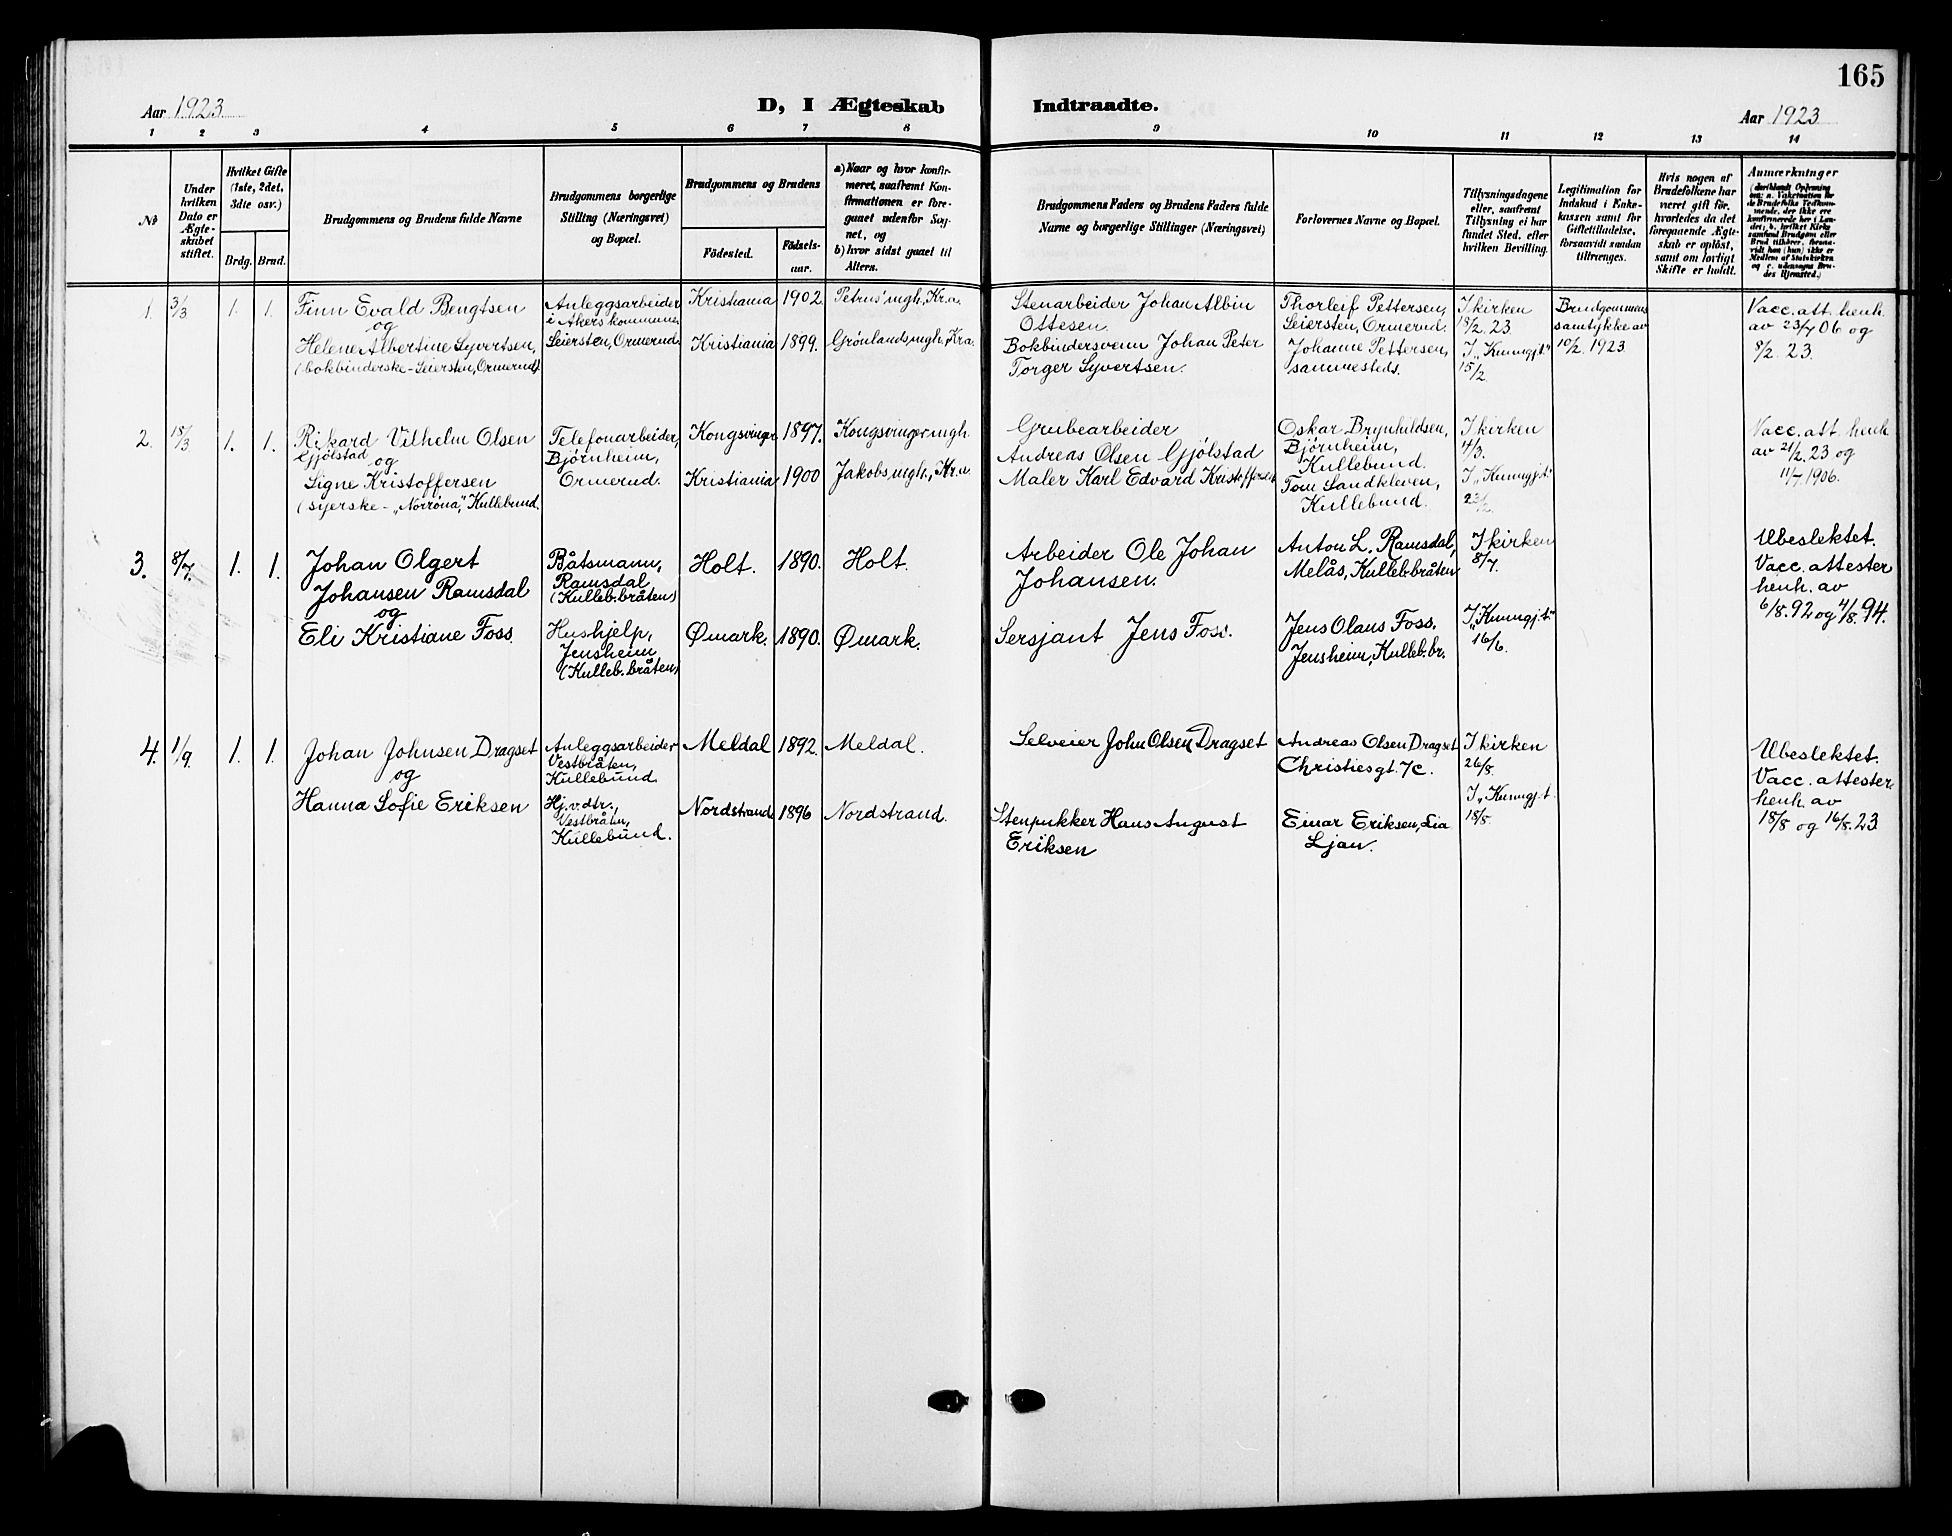 165
Aar 1923
D, I Ægteskab Indtraadte.
Aar 1923
1 2 3 4 5 6 7 8 9 10 11 12 13 14
№
Under hvilken Dato er Ægteskabet stiftet.
Hvilket Gifte (1ste, 2det, 3dte osv.)
Brdg. Brud.
Brudgommens og Brudens fulde Navne
Brudgommens borgerlige Stilling (Næringsvei) og Bopæl.
Brudgommens og Brudens
Födested.
Födselsaar.
a) Naar og hvor konfirmeret, saafremt Konfirmationen er foregaaet udenfor Sognet, og
b) hvor sidst gaaet til Alters.
Brudgommens Faders og Brudens Faders fulde Navne og borgerlige Stillinger (Næringsvei)
Forlovernes Navne og Bopæl.
Tillysningsdagene eller, saafremt Tillysning ei har fundet Sted, efter hvilken Bevilling.
Legitimation for Indskud i Enkekassen samt for Giftetilladelse, forsaavidt saadan tiltrænges.
Hvis nogen af Brudefolkene har været gift för, hvorledes da det foregaaende Ægteskab er oplöst, samt om lovligt Skifte er holdt.
Anmærkninger
1. 3/3 1. 1.
Finn Evald Bengtsen
og
Helene Albertine Syvertsen,
(bokbinderske - Seiersten, Ormerud).
Anleggsarbeider
i Akers kommune
Seiersten, Ormerud.
Kristiania 1902 Petrus' mgh, Kr.a.
Kristiania 1899. Grönlands mgh., Kr.a.
Stenarbeider Johan Albin
Ottesen.
Bokbindersvenn Johan Peter
Torger Syvertsen.
Thorleif Pettersen,
Seiersten, Ormerud.
Johanne Pettersen,
sammesteds.
I kirken
18/2. 23
I „Kunngj.t"
15/2.
Brudgommens
samtykke av
10/2. 1923.
Vacc. att. henh.
av 23/7 06 og
8/2. 23.
2. 18/3 1. 1.
Rikard Vilhelm Olsen
Gjølstad og
Signe Kristoffersen
(syerske - „Norrøna", Kullebund.
Telefonarbeider,
Bjørnheim,
Ormerud.
Kongsvinger 1897. Kongsvinger mgh.
Kristiania 1900 Jakobs mgh., Kr.a.
Grubearbeider
Andreas Olsen Gjølstad
Maler Karl Edvard Kristoffersen
Oskar Brynhildsen,
Bjørnheim,
Kullebund.
Tom Sandkleven,
Kullebund.
I kirken
4/3.
I „Kunngj.t."
23/2.
Vacc. att. henh
av 21/2. 23 og
11/7. 1906.
3. 8/7. 1. 1.
Johan Olgert
Johansen Ramsdal
og
Eli Kristiane Foss.
Båtsmann,
Ramsdal
(Kulleb.bråten)
Hushjelp,
Jensheim
(Kulleb.bråten)
Holt. 1890. Holt.
Ømark. 1890. Ømark.
Arbeider Ole Johan
Johansen.
Sersjant Jens Foss.
Anton L. Ramsdal,
Melås, Kulleb.bråten
Jens Olaus Foss.
Jensheim, Kulleb.br.
I kirken
8/7.
I „Kunngj.t."
16/6.
Ubeslektet.
Vacc. attester
henh. av
6/8. 92 og 4/8. 94.
4. 1/9. 1. 1.
Johan Johnsen Dragset
og
Hanna Sofie Eriksen
Anleggsarbeider
Vestbråten,
Kullebund.
Hj.v.dtr.,
Vestbråten,
Kullebund.
Meldal 1892. Meldal.
Nordstrand 1896 Nordstrand.
Selveier John Olsen Dragset
Stenpukker Hans August
Eriksen
Andreas Olsen Dragset
Christiesgt. 7c.
Einar Eriksen, Lia
Ljan.
I kirken
26/8.
I „Kunngj.t.
18/8.
Ubeslektet.
Vacc. attester
henh. av
18/8 og 16/8. 23